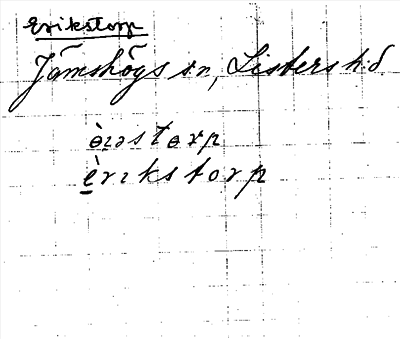 Erikstorp
Jämshögs sn, Listers h:d
èıəstɵrp
èrıkstorp